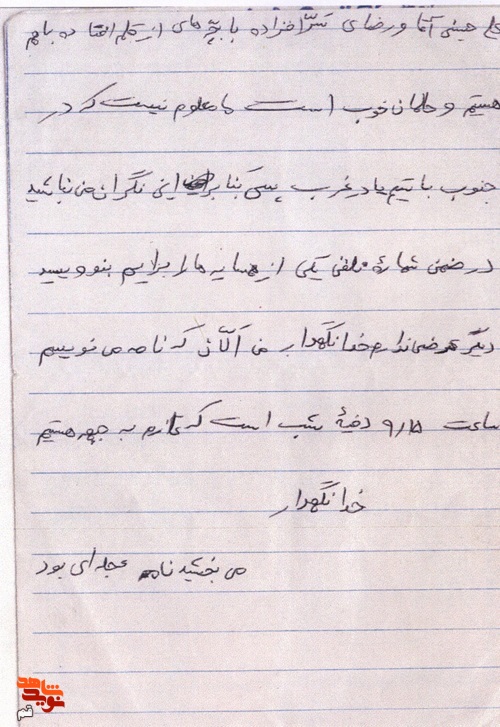 حسینی آقا و رضای با بچه‌های از ده باهم
هستیم و حالمان خوب است معلوم نیست که در
جنوب باشیم یا در غرب پس بنا براین نگران من نباشید
در ضمن شمارهٔ تلفن یکی از همسایه ها را برایم بنوویسید
دیگر عرضی ندارم خدانگهدار من الآن که نامه می نویسم
ساعت ۹/۱۵ دقیهٔ شب است که عازم به جبهه هستیم
خدانگهدار
می بخشید نامه عجله ای بود
شاهد
نوید